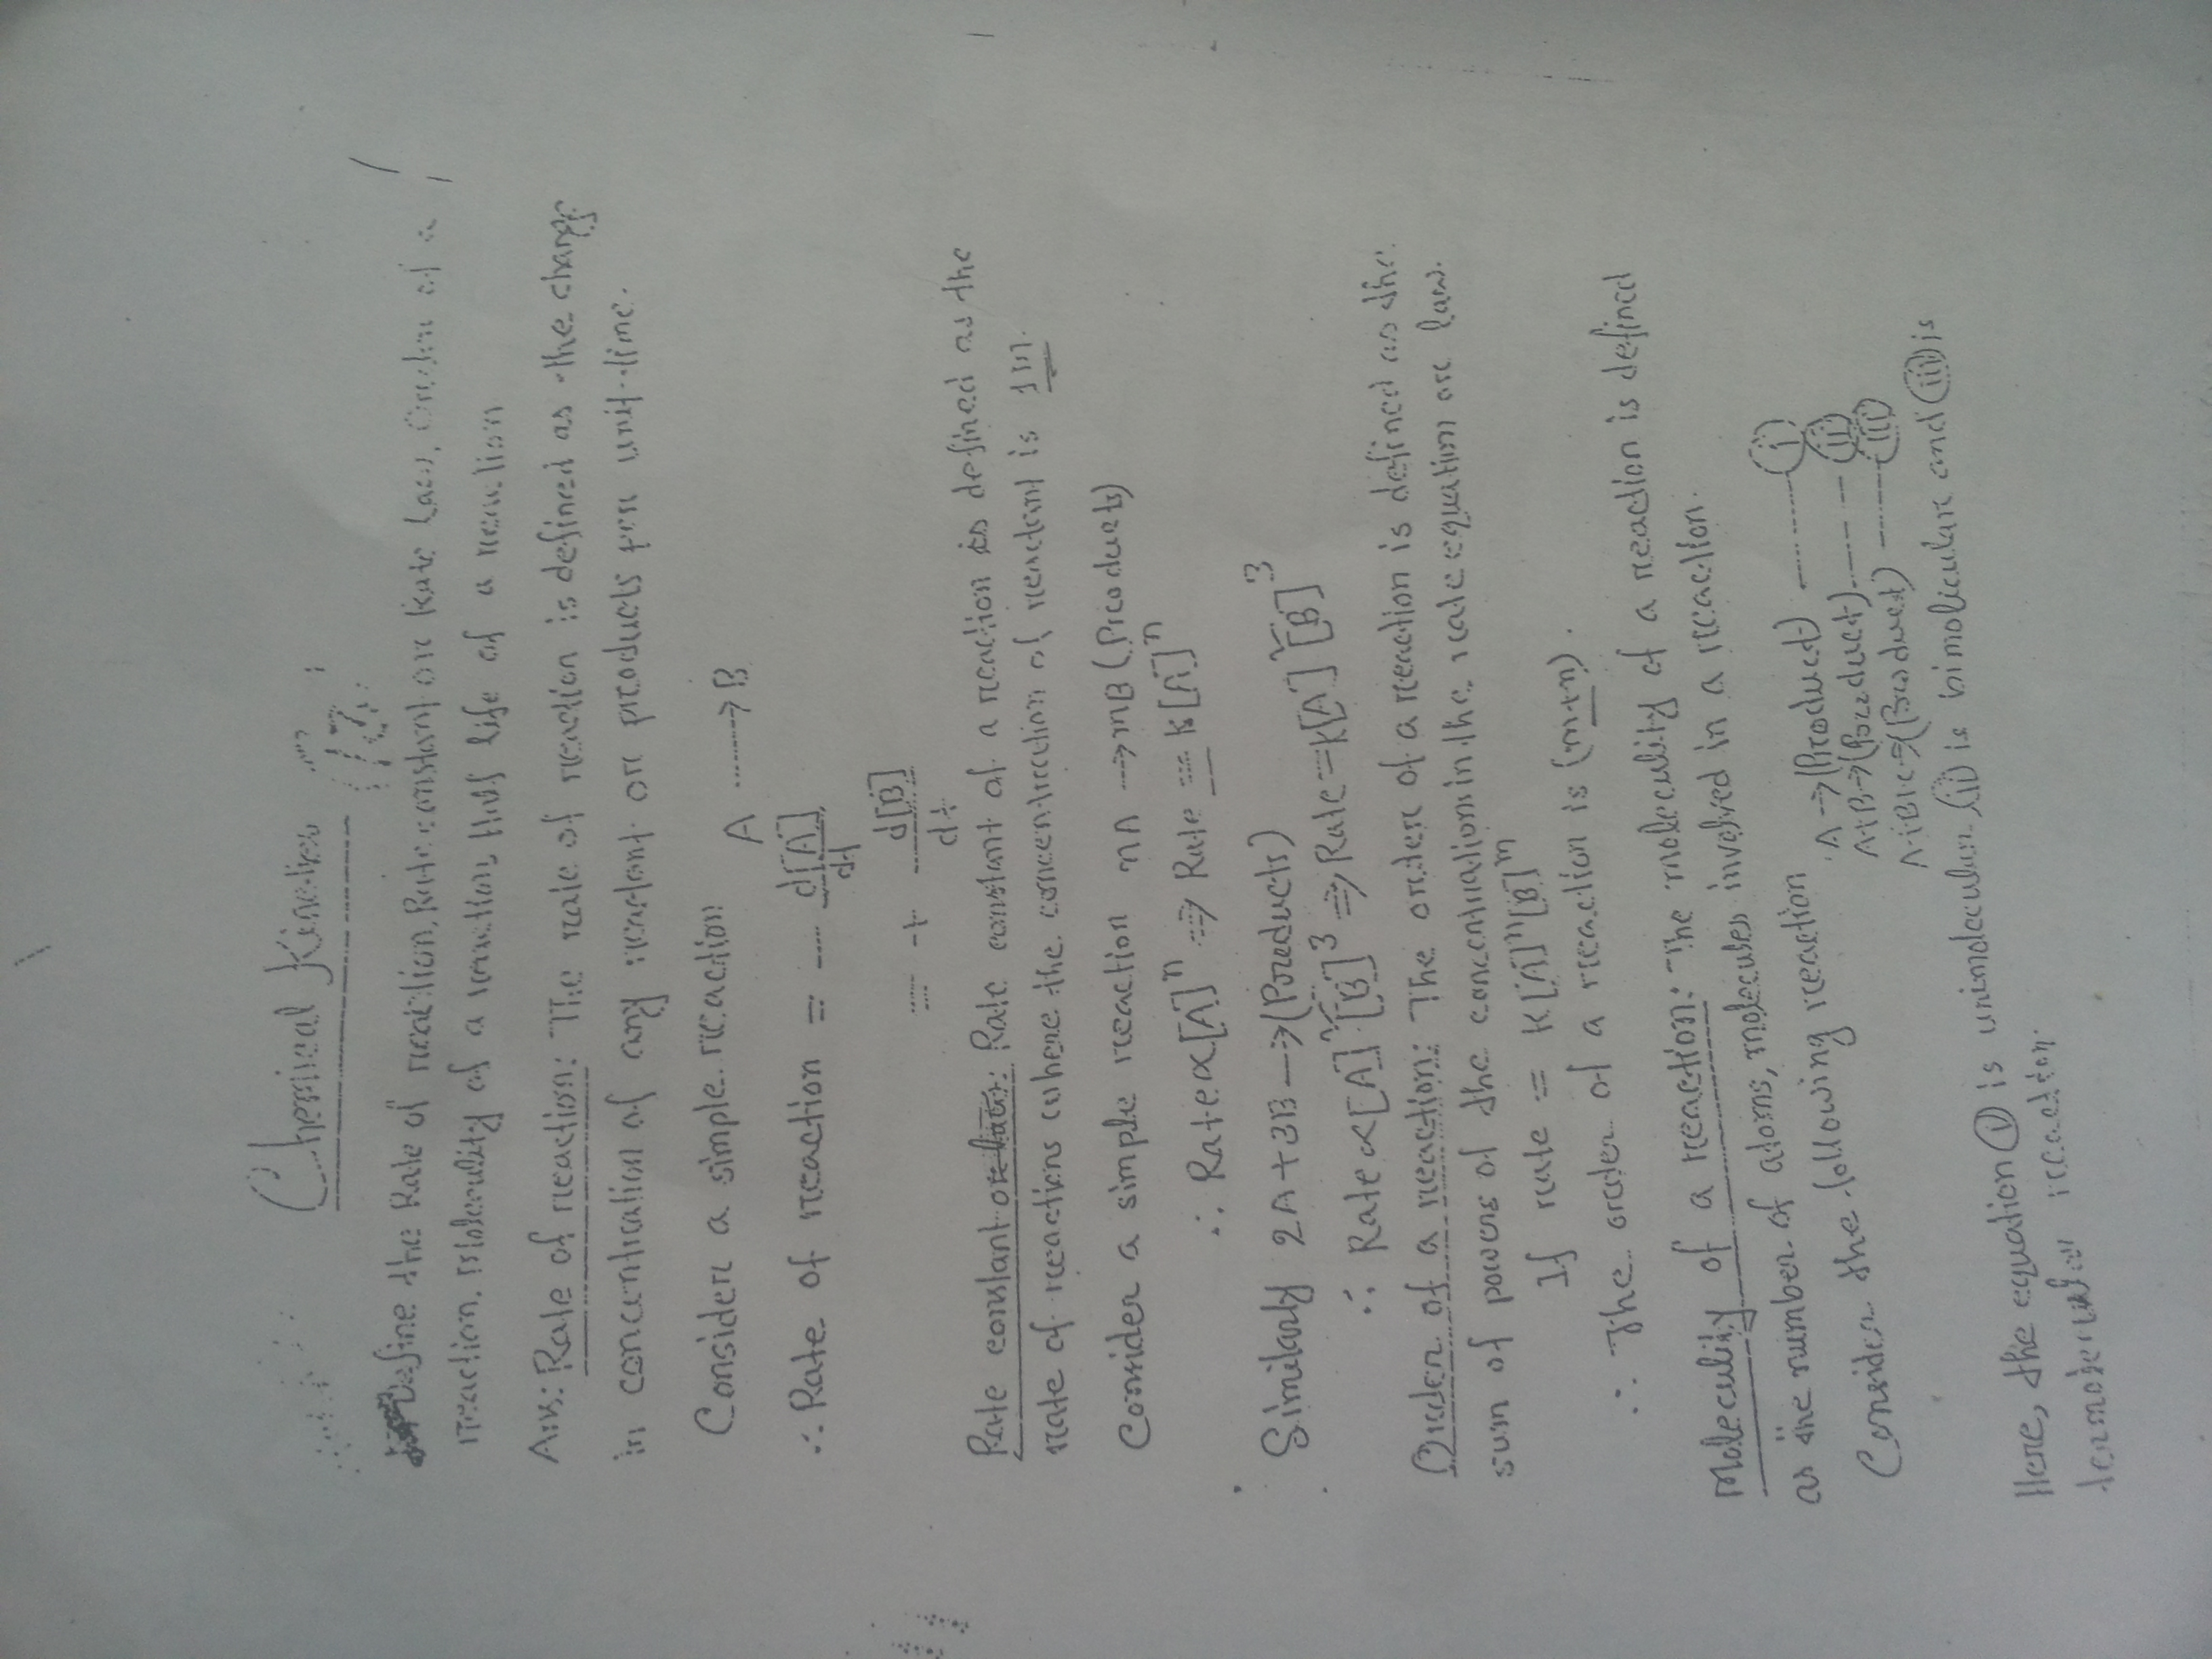 Chemical Kinetics
Define the Rate of reaction, Rate constant or Rate Law, Order of a
reaction. Moleculity of a reaction, Half life of a reaction
Ans: Rate of reaction: The rate of reaction is defined as the change
in concentration of any reactant or products per unit time.
Consider a simple reaction
A → B
∴ Rate of reaction = - d[A]/dt
= + d[B]/dt
Rate constant or law: Rate constant of a reaction is defined as the
rate of reactions where the concentration of reactant is 1M.
Consider a simple reaction nA → mB (Products)
∴ Rate ∝ [A]ⁿ ⇒ Rate = k[A]ⁿ
Similarly 2A + 3B → (Products)
∴ Rate ∝ [A]²[B]³ ⇒ Rate = k[A]²[B]³
Order of a reaction: The order of a reaction is defined as the
sum of powers of the concentrations in the rate equation or law.
If rate = K[A]ⁿ[B]ᵐ
∴ The order of a reaction is (m+n).
Moleculity of a reaction: The moleculity of a reaction is defined
as the number of atoms, molecules involved in a reaction.
Consider the following reaction
A → (Product) ------ (i)
A+B → (Product) ------ (ii)
A+B+C → (Product) ------ (iii)
Here, the equation (i) is unimolecular (ii) is bimolicular and (iii) is
termolecular reaction.